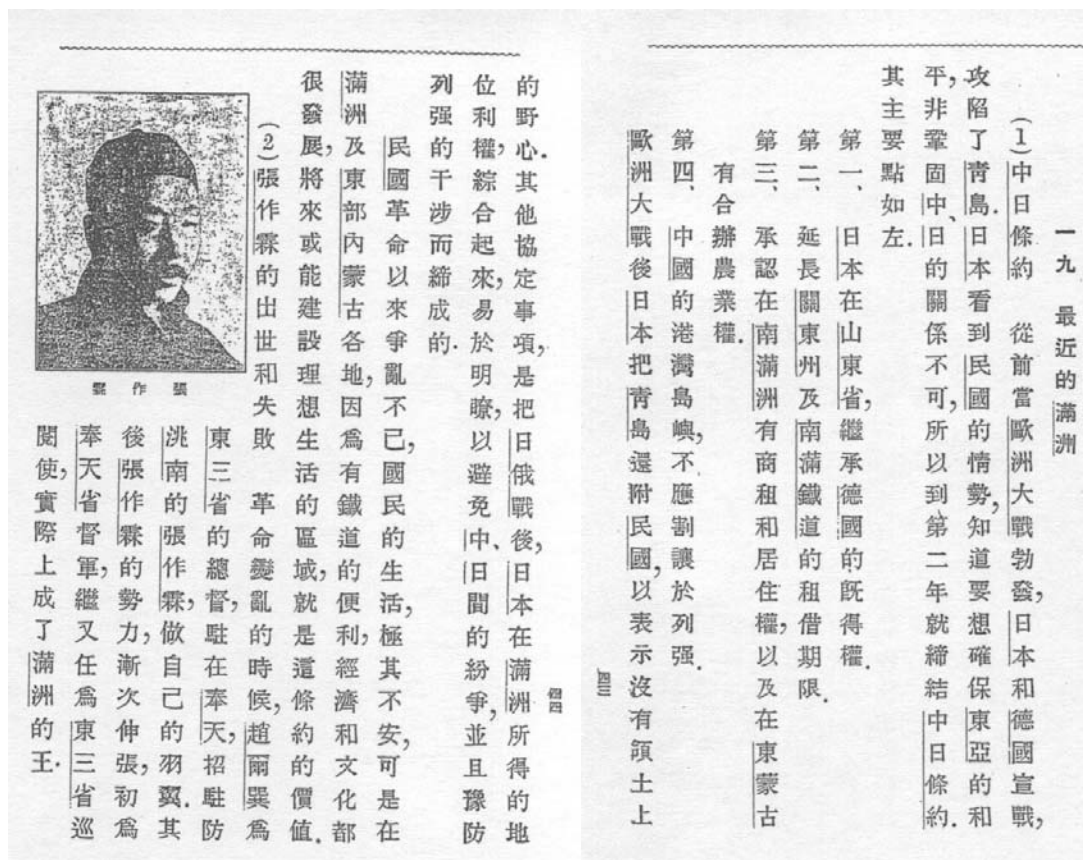 一九 最近的滿洲
(1)中日條約 從前當歐洲大戰勃發,日本和德國宣戰,
攻陷了靑島.日本看到民國的情勢,知道要想確保東亞的和
平,非鞏固中、日的關係不可,所以到第二年就締結中日條約.
其主要點如左.
第一、 日本在山東省,繼承德國的旣得權.
第二、 延長關東州及南滿鐵道的租借期限.
第三、 承認在南滿洲有商租和居住權,以及在東蒙古
有合辦農業權.
第四、 中國的港灣島嶼,不應割讓於列强.
歐洲大戰後日本把靑島還附民國,以表示沒有領土上
四三
四四
的野心.其他協定事項,是把日俄戰後,日本在滿洲所得的地
位利權,綜合起來,易於明瞭,以避免中、日間的紛爭,並且豫防
列强的干涉而締成的.
民國革命以來爭亂不已,國民的生活,極其不安,可是在
滿洲及東部內蒙古各地,因爲有鐵道的便利,經濟和文化都
很發展,將來或能建設理想生活的區域,就是這條約的價值.
(2)張作霖的出世和失敗 革命變亂的時候,趙爾巽爲
東三省的總督,駐在奉天,招駐防
洮南的張作霖,做自己的羽翼.其
後張作霖的勢力,漸次伸張,初爲
奉天省督軍,繼又任爲東三省巡
閱使,實際上成了滿洲的王.
張作霖